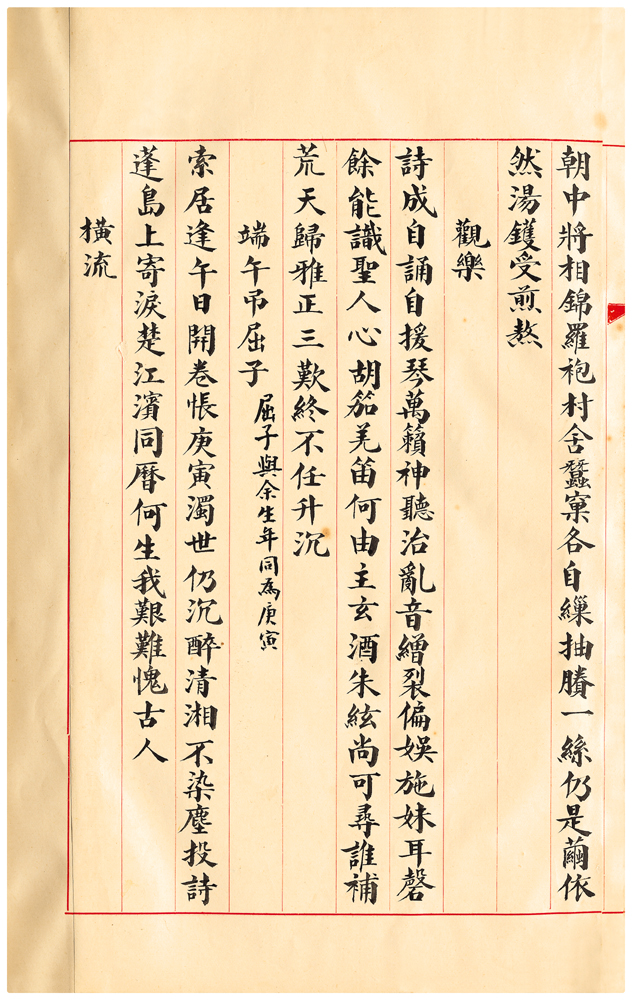 朝中將相錦羅袍村舍蠶窠各自繅抽賸一絲仍是繭依
然湯鑊受煎熬
觀樂
詩成自誦自援琴萬籟神聽治亂音繒裂偏娛施妹耳磬
餘能識聖人心胡笳羌笛何由主玄酒朱絃尚可尋誰補
荒天歸雅正三歎終不任升沉
端午弔屈子 屈子與余生年同為庚寅
索居逢午日開卷悵庚寅濁世仍沉醉清湘不染塵投詩
蓬島上寄淚楚江濱同曆何生我艱難愧古人
橫流